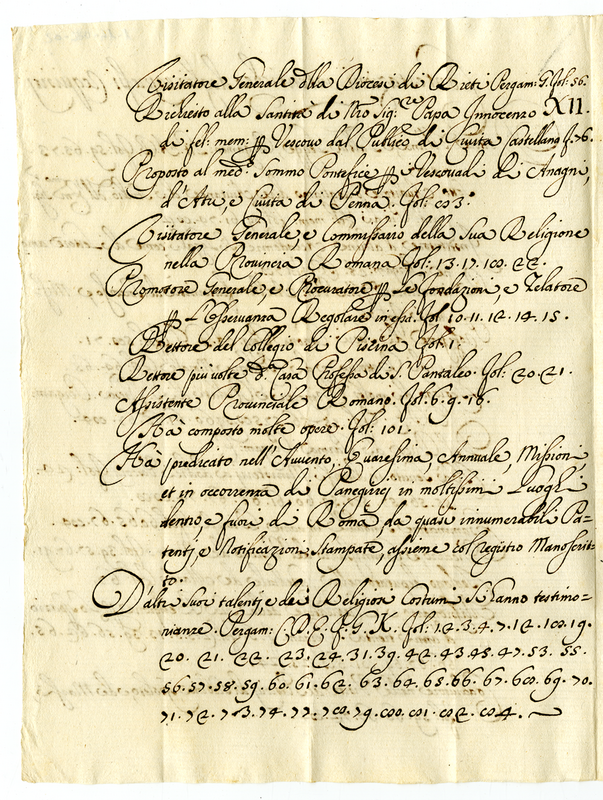 Visitatore Generale della Diocesi di Rieti Pergam: G. Fol: 56.
Richiesto alla Santità di Nro Sig.re Papa Innocenzo XII.
di fel: mem: p Vescovo dal Publico di Civita Castellana f. 76.
Proposto al med.o Sommo Pontefice p i Vescovadi di Anagni,
d'Atri, e Civita di Penna. Fol: 83.
Visitatore Generale, e Commissario della Sua Religione
nella Provincia Romana Fol: 13. 17. 18. 22.
Promotore Generale, e Procuratore p le fondazioni, e Zelatore
p l'Osservanza Regolare in essa. Fol 10. 11. 12. 14. 15.
Rettore del Collegio di Piscina Fol: 1.
Rettore più volte d. Casa Professa di S. Pantaleo. Fol: 20. 21.
Assistente Provinciale Romano. Fol. 6. 9. 16.
Hà composto molte opere. Fol: 101.
Hà predicato nell'Avvento, Quaresima, Annuale, Missioni,
et in occorrenza di Panegirici in moltissimi Luoghi
dentro, e fuori di Roma da quasi innumerabili Pa=
tenti, e Notificazioni Stampate, assieme col registro Manoscrit=
to.
D'altri suoi talenti, e dei Religiosi Costumi Si hanno testimo=
nianze. Pergam: C. D. E. F. G. K. Fol: 1. 2. 3. 4. 7. 12. 18. 19.
20. 21. 22. 23. 24. 31. 39. 42. 43. 45. 47. 53. 55.
56. 57. 58. 59. 60. 61. 62. 63. 64. 65. 66. 67. 68. 69. 70.
71. 72. 73. 74. 77. 78. 79. 80. 81. 82. 84.